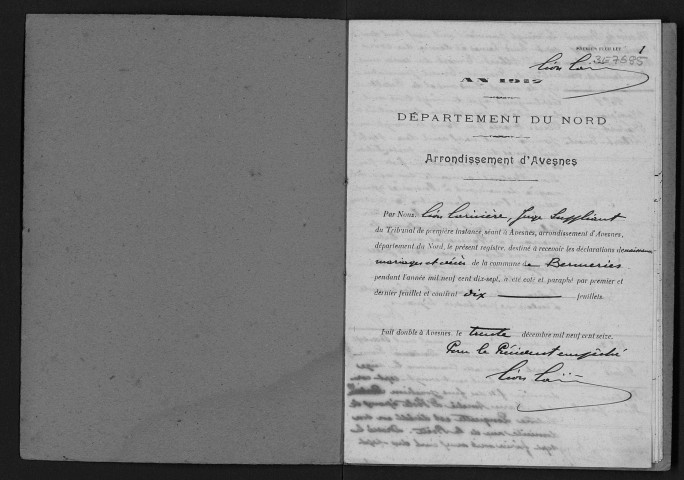 PREMIER FEUILLET 1
Léon Lari
367685
AN 1917
DÉPARTEMENT DU NORD
Arrondissement d'Avesnes
Par Nous, Léon Larivière, Juge Suppléant
du Tribunal de première instance, séant à Avesnes, arrondissement d'Avesnes,
département du Nord, le présent registre, destiné à recevoir les déclarations de naissances
mariages et décès de la commune de Bermeries
pendant l'année mil neuf cent dix-sept, a été coté et paraphé par premier et
dernier feuillet et contient dix feuillets.
Fait double à Avesnes, le trente décembre mil neuf cent seize.
Pour le Président empêché
Léon Lari